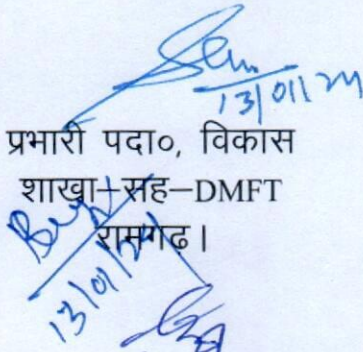 13/01/24
प्रभारी पदा०, विकास
शाखा–सह–DMFT
रामगढ।
13/01/24